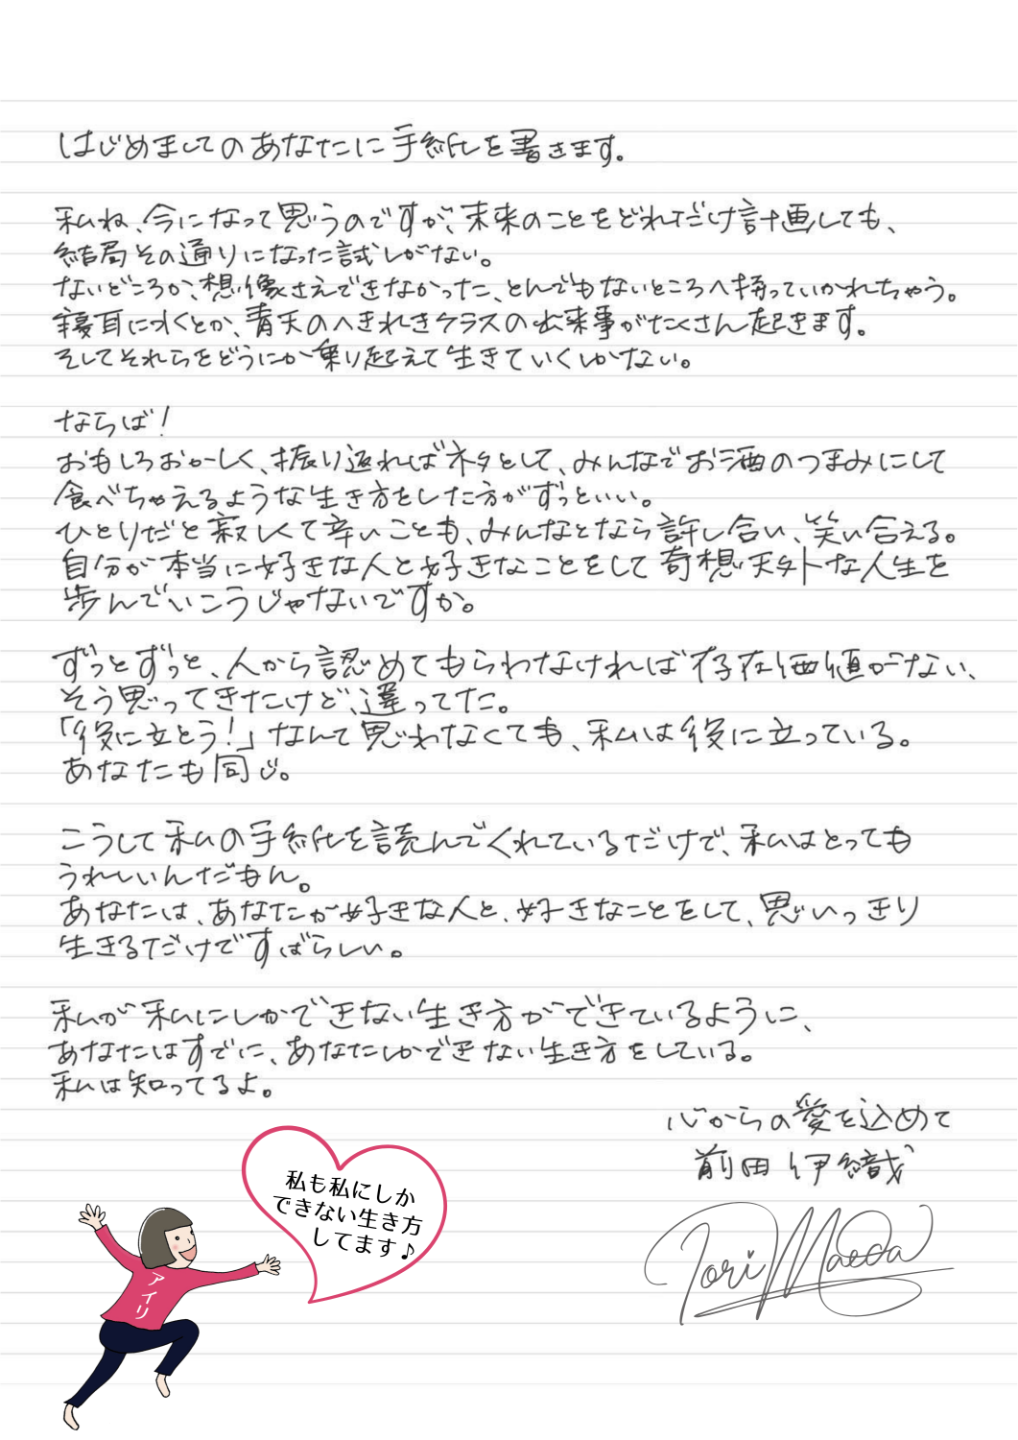 はじめましてのあなたに手紙を書きます。
私ね、今になって思うのですが、未来のことをどれだけ計画しても、
結局その通りになった試しがない。
ないどころか、想像さえできなかった、とんでもないところへ持っていかれちゃう。
寝耳に水とか、青天のへきれきクラスの出来事がたくさん起きます。
そしてそれらをどうにか乗り越えて生きていくしかない。
ならば!
おもしろおかしく、振り返ればネタとして、みんなでお酒のつまみにして
食べちゃえるような生き方をした方がずっといい。
ひとりだと寂しくて辛いことも、みんなとなら許し合い、笑い合える。
自分が本当に好きな人と好きなことをして奇想天外な人生を
歩んでいこうじゃないですか。
ずっとずっと、人から認めてもらわなければ存在価値がない、
そう思ってきたけど、違ってた。
「役に立とう!」なんて思わなくても、私は役に立っている。
あなたも同じ。
こうして私の手紙を読んでくれているだけで、私はとっても
うれしいんだもん。
あなたは、あなたが好きな人と、好きなことをして、思いっきり
生きるだけですばらしい。
私が私にしかできない生き方ができているように、
あなたはすでに、あなたしかできない生き方をしている。
私は知ってるよ。
心からの愛を込めて
前田 伊織
Iori Maeda
私も私にしか
できない生き方
してます♪
アイリ